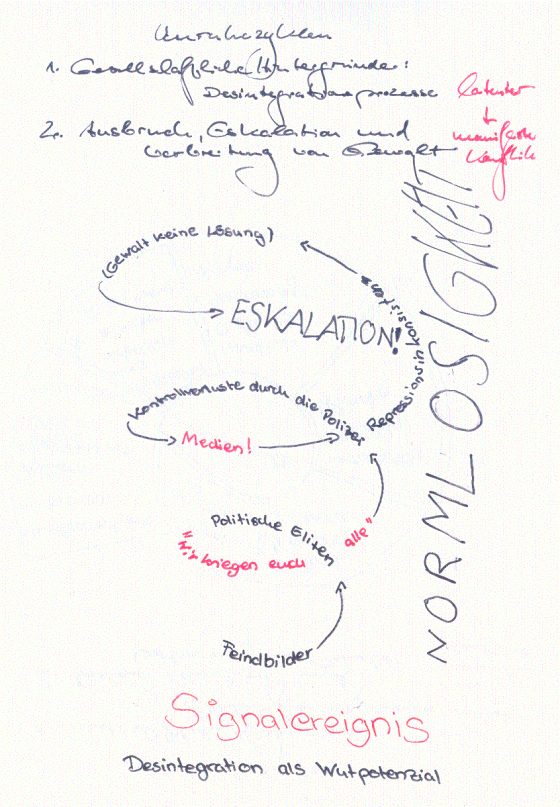 Unruhezyklen
1. Gesellschaftliche Hintergründe:
Desintegrationsprozesse
latenter
↓
manifeste
Konflikte
2. Ausbruch, Eskalation und
Verbreitung von Gewalt
(Gewalt keine Lösung)
ESKALATION!
"Repressionsinkonsistenz"
Kontrollverluste durch die Polizei
Medien!
Politische Eliten
"Wir kriegen euch alle"
Feindbilder
NORMLOSIGKEIT
Signalereignis
Desintegration als Wutpotenzial